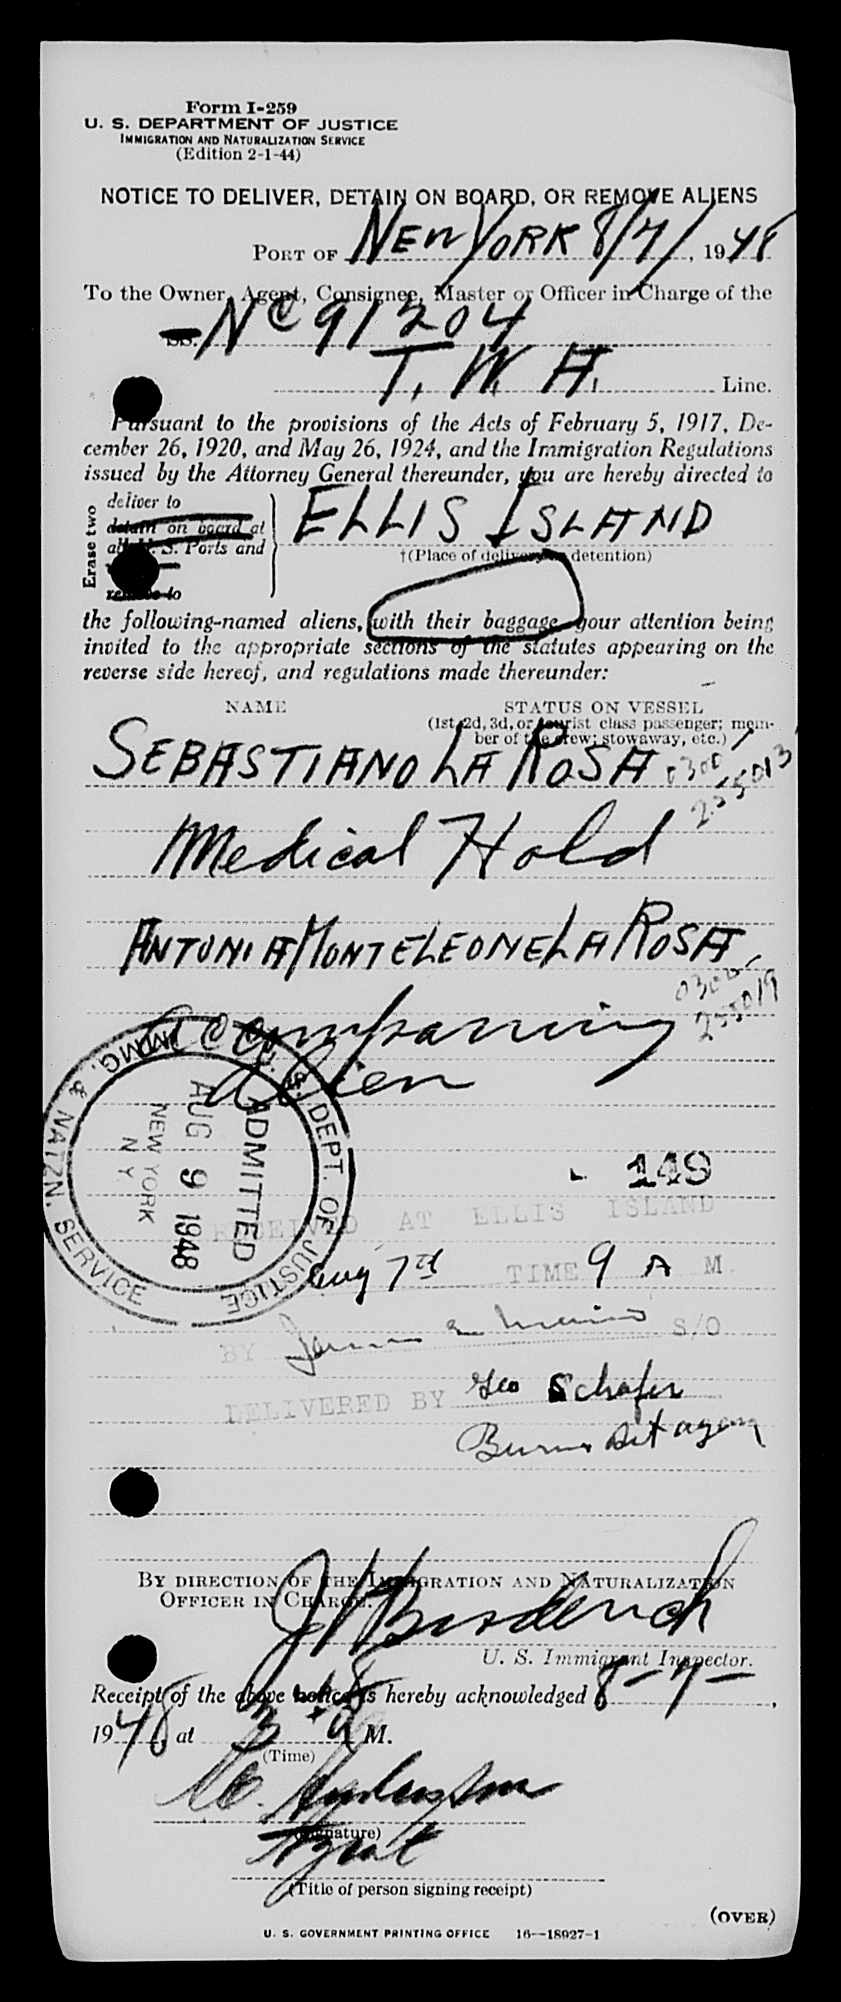 Form I-259
U. S. DEPARTMENT OF JUSTICE
IMMIGRATION AND NATURALIZATION SERVICE
(Edition 2-1-44)
NOTICE TO DELIVER, DETAIN ON BOARD, OR REMOVE ALIENS
PORT OF NEW YORK 8/7/, 1948
To the Owner, Agent, Consignee, Master or Officer in Charge of the
SS. NC 91204
T. W. A. Line.
Pursuant to the provisions of the Acts of February 5, 1917, De-
cember 26, 1920, and May 26, 1924, and the Immigration Regulations
issued by the Attorney General thereunder, you are hereby directed to
Erase two
deliver to
detain on board at
all U. S. Ports and
remove to
ELLIS ISLAND
†(Place of delivery or detention)
the following-named aliens, with their baggage, your attention being
invited to the appropriate sections of the statutes appearing on the
reverse side hereof, and regulations made thereunder:
NAME STATUS ON VESSEL
(1st, 2d, 3d, or tourist class passenger; mem-
ber of the crew; stowaway, etc.)
SEBASTIANO LA ROSA 0300
255013
Medical Hold
ANTONIA MONTELEONE LA ROSA
0300
255019
Accompanying
Alien
U. S. DEPT. OF JUSTICE
IMMG. & NATZN. SERVICE
ADMITTED
AUG 9 1948
NEW YORK
N Y
149
RECEIVED AT ELLIS ISLAND
Aug 7th TIME 9 A M
BY S/O
DELIVERED BY Geo Schafer
Burns Det agency
BY DIRECTION OF THE IMMIGRATION AND NATURALIZATION
OFFICER IN CHARGE.
J Broderick
U. S. Immigrant Inspector.
Receipt of the above notice is hereby acknowledged 8-7-,
1948, at 3 A M.
(Time)
(Signature)
Agent
(Title of person signing receipt)
(OVER)
U. S. GOVERNMENT PRINTING OFFICE 16—18927-1